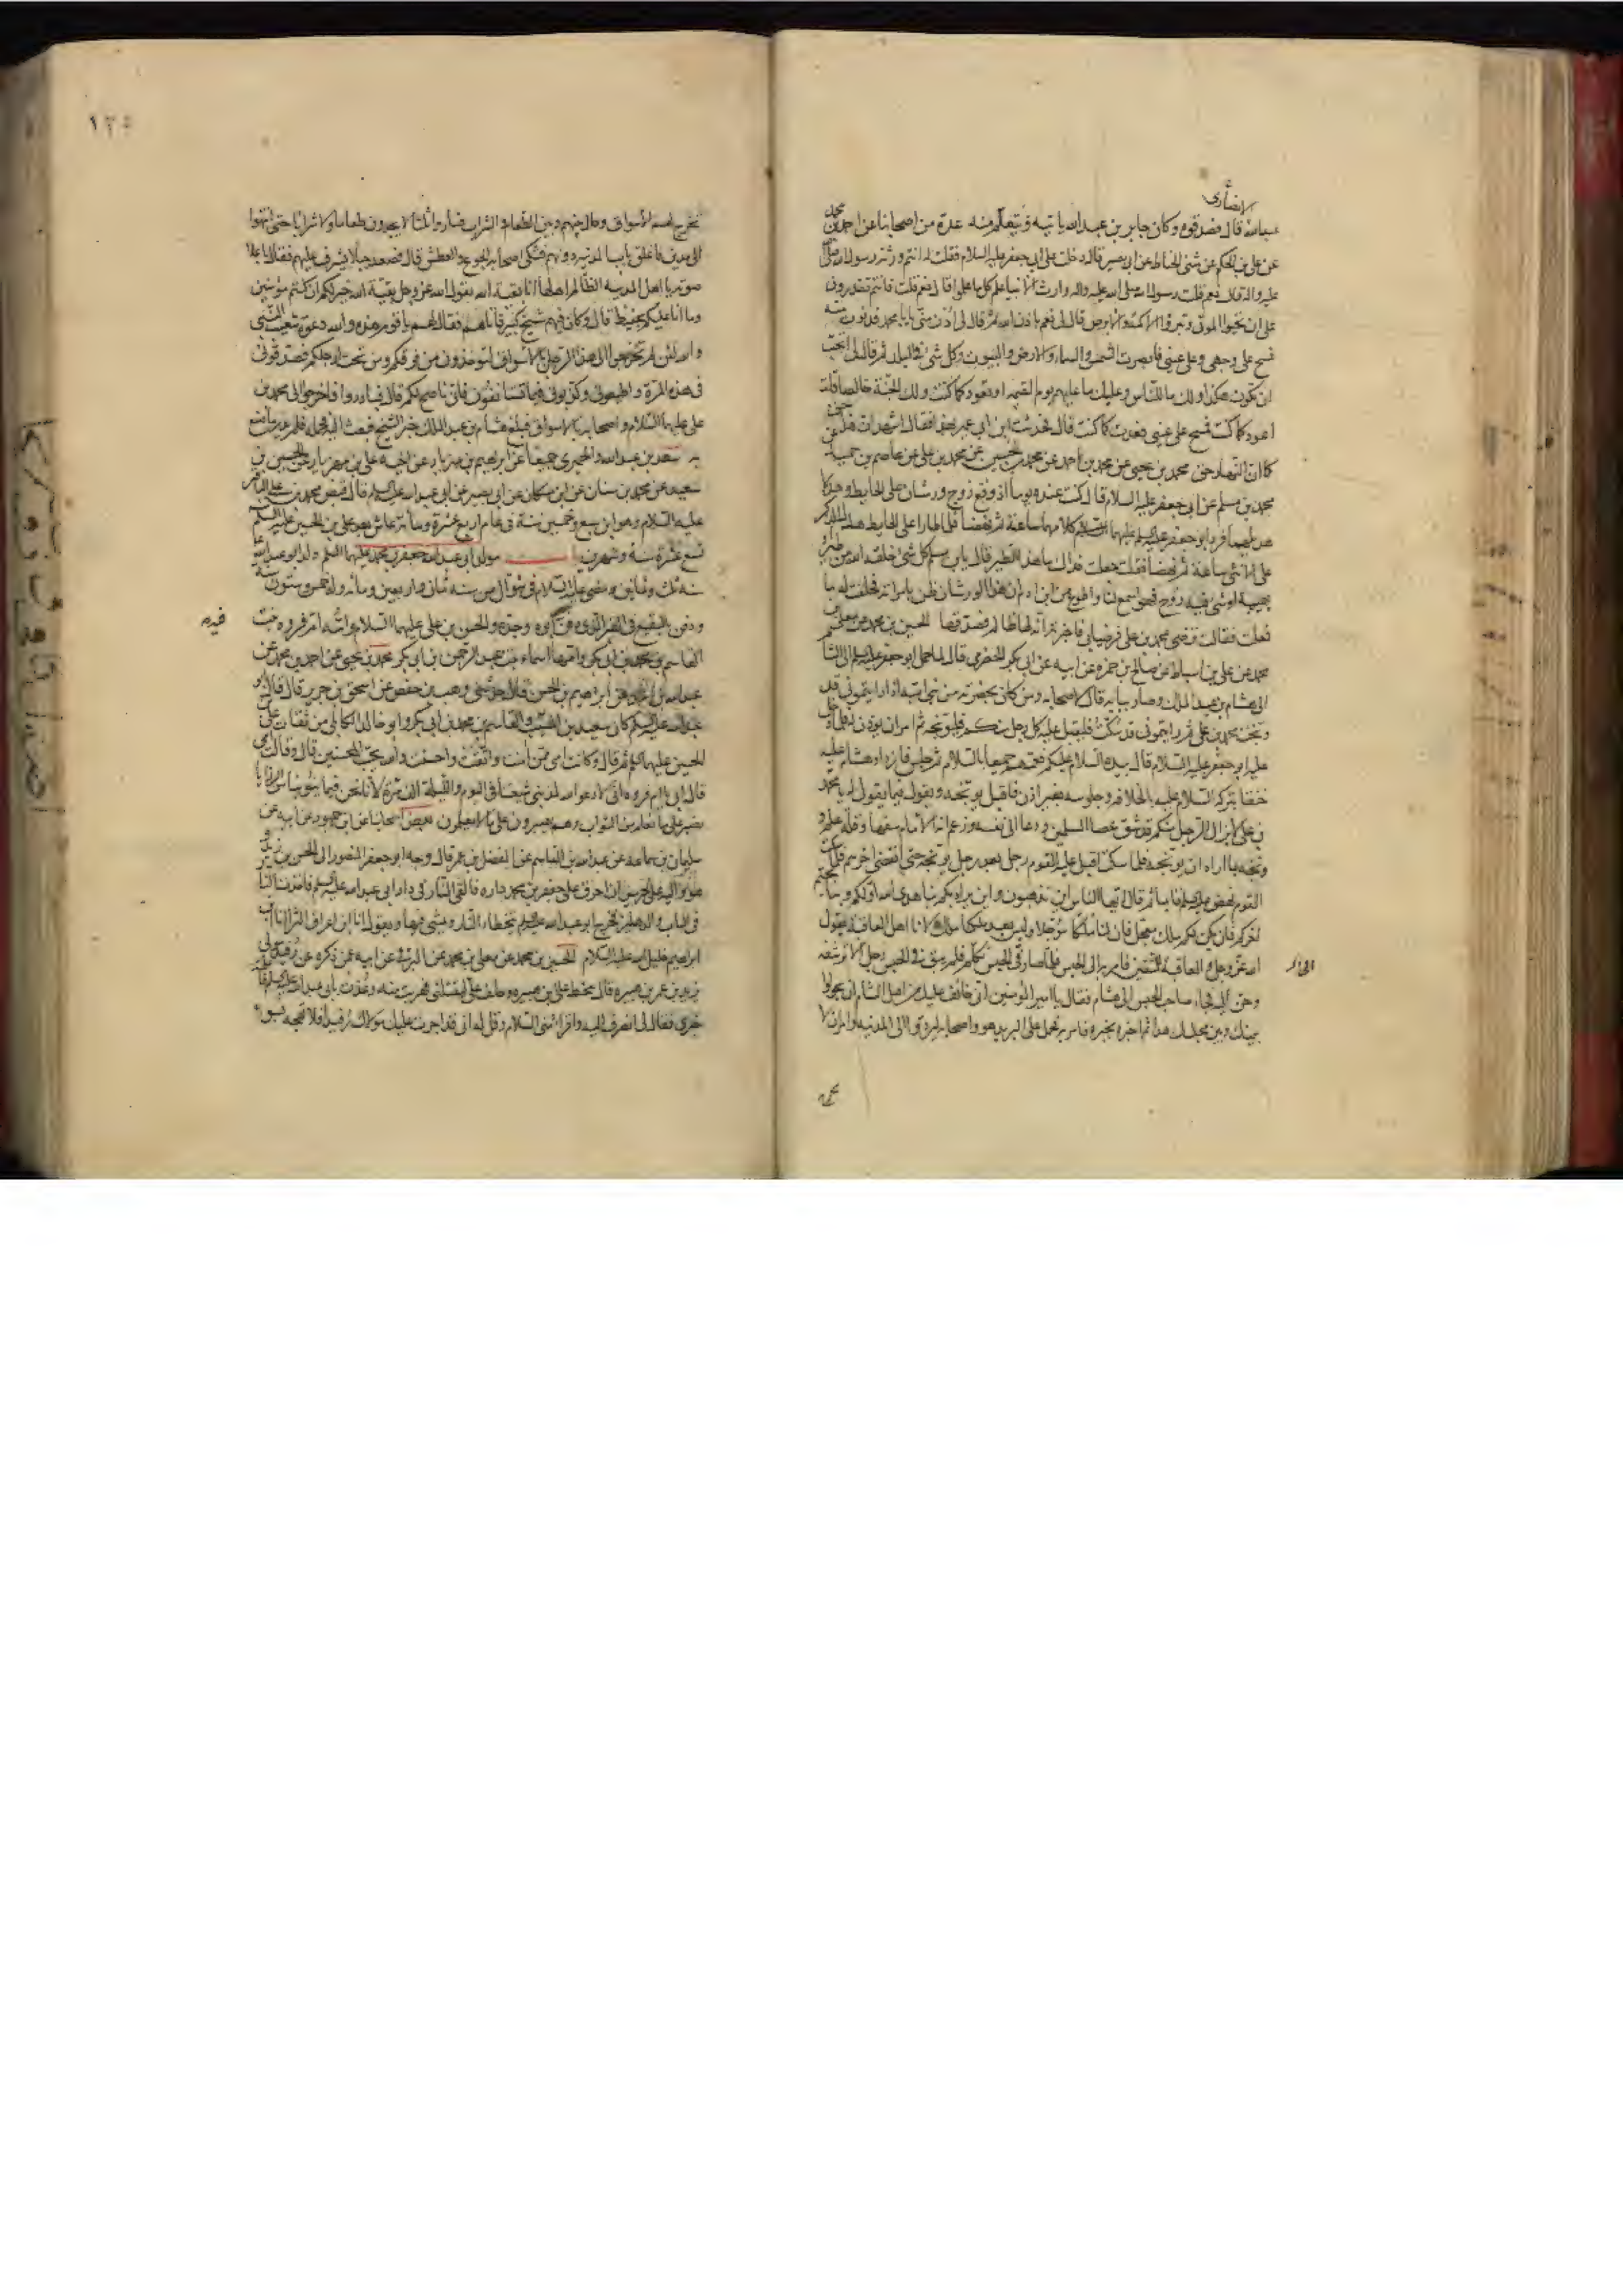 الانصاری
عبدالله قال فصدقوه وكان جابر بن عبدالله ياتيه فيتعلم منه عدة من اصحابنا عن احمد بن محمد
عن علي بن الحكم عن مثنى الحناط عن ابي بصير قال دخلت على ابي جعفر عليه السلام فقلت له انتم ورثة رسول الله صلى
عليه واله قال نعم قلت رسول الله صلى الله عليه واله وارث الانبيا علم كل ما علموا قال نعم قلت فانتم تقدرون
على ان تحيوا الموتى وتبرؤا الاكمه والابرص قال لي نعم باذن الله ثم قال لي ادن مني يا با محمد فدنوت منه
فمسح على وجهي وعلى عيني فابصرت الشمس والسماء والارض والبيوت وكل شئ في البلد ثم قال لي اتحب
ان تكون هكذا ولك ما للناس وعليك ما عليهم يوم القيمه او تعود كما كنت ولك الجنة خالصا قلت
اعود كما كنت فمسح على عيني فعدت كما كنت قال فحدثت ابن ابي عمير بهذا فقال اشهد ان هذا حق
كما ان النهار حق محمد بن يحيى عن محمد بن احمد عن محمد بن الحسين عن محمد بن علي عن عاصم بن حميد عن
محمد بن مسلم عن ابي جعفر عليه السلام قال كنت عنده يوما اذ وقع زوج ورشان على الحايط وهدلا
هديلهما فرد ابو جعفر عليه السلم عليهما كلامهما ساعة ثم نهضا فلما طارا على الحايط هدل الذكر
على الانثى ساعة ثم نهضا فقلت جعلت فداك ما هذا الطير قال يابن مسلم كل شئ خلقه الله من طير او
بهيمة او شئ فيه روح فهو اسمع لنا واطوع من ابن ادم ان هذا الورشان ظن بامراته فحلفت له ما
فعلت فقالت ترضى بمحمد بن علي فرضيا بي فاخبرته انه لها ظالم فصدقها الحسين بن محمد عن معلى بن
محمد عن علي بن اسباط عن صالح بن حمزه عن ابيه عن ابي بكر الحضرمي قال لما حمل ابو جعفر عليه السلم الى الشام
الى هشام بن عبد الملك وصار ببابه قال لاصحابه ومن كان بحضرته من بني اميه اذا رايتموني قد
وبخت محمد بن علي ثم رايتموني قد سكت فليقبل عليه كل رجل منكم فليوبخه ثم امر ان يؤذن له فلما دخل
عليه ابو جعفر عليه السلام قال بيده السلام عليكم فعمهم جميعا بالسلام ثم جلس فازداد هشام عليه
حنقا بتركه السلام عليه بالخلافه وجلوسه بغير اذن فاقبل يوبخه ويقول فيما يقول له يا محمد
بن علي لا يزال الرجل منكم قد شق عصا المسلمين ودعا الى نفسه وزعم انه الامام سفها وقلة علم و
وبخه بما اراد ان يوبخه فلما سكت اقبل عليه القوم رجل بعد رجل يوبخه حتى انقضى اخرهم فلما سكت
القوم نهض عليه السلم قايما ثم قال ايها الناس اين تذهبون واين يراد بكم بنا هدى الله اولكم وبنا يختم
اخركم فان يكن لكم ملك معجل فان لنا ملكا مؤجلا وليس بعد ملكنا ملك لانا اهل العاقبة يقول
الله عز وجل والعاقبة للمتقين فامر به الى الحبس فلما صار في الحبس تكلم فلم يبق في الحبس رجل الا ترشفه
وحن اليه فجاء صاحب الحبس الى هشام فقال يا امير المؤمنين اني خائف عليك من اهل الشام ان يحولوا
بينك وبين مجلسك هذا ثم اخبره بخبره فامر به فحمل على البريد هو واصحابه ليردوا الى المدينه وامر ان لا
١٢٥
تخرج لهم الاسواق وحال بينهم وبين الطعام والشراب فساروا ثلثا لا يجدون طعاما ولا شرابا حتى انتهوا
الى مدين فاغلق باب المدينه دونهم فشكى اصحابه الجوع والعطش قال فصعد جبلا يشرف عليهم فقال باعلا
صوته يا اهل المدينه الظالم اهلها انا بقية الله يقول الله عز وجل بقية الله خير لكم ان كنتم مؤمنين
وما انا عليكم بحفيظ قال وكان فيهم شيخ كبير فاتاهم فقال لهم يا قوم هذه والله دعوة شعيب النبي
والله لئن لم تخرجوا الى هذا الرجل بالاسواق لتوخذون من فوقكم ومن تحت ارجلكم فصدقوني
في هذه المرة واطيعوني وكذبوني فيما تستانفون فاني ناصح لكم قال فبادروا فاخرجوا الى محمد بن
علي عليهما السلام واصحابه بالاسواق فبلغ هشام بن عبد الملك خبر الشيخ فبعث اليه فحمله فلم يدر ما صنع
به سعد بن عبدالله والحميري جميعا عن ابراهيم بن مهزيار عن اخيه علي بن مهزيار عن الحسين بن
سعيد عن محمد بن سنان عن ابن مسكان عن ابي بصير عن ابي عبدالله عليه السلام قال قبض محمد بن علي الباقر
عليه السلام وهو ابن سبع وخمسين سنة في عام اربع عشرة ومائة عاش بعد علي بن الحسين عليه السلم
تسع عشرة سنة وشهرين مولد ابي عبدالله جعفر بن محمد عليهما السلم ولد ابو عبدالله
سنه ثلث وثمانين ومضى عليه السلام في شوال من سنه ثمان واربعين ومائه وله خمس وستون سنة
ودفن بالبقيع في القبر الذي دفن فيه ابوه وجده والحسن بن علي عليهما السلام وامه ام فروه بنت
القاسم بن محمد بن ابي بكر وامها اسماء بنت عبد الرحمن بن ابي بكر محمد بن يحيى عن احمد بن محمد عن
عبدالله بن احمد عن ابراهيم بن الحسن قال حدثني وهب بن حفص عن اسحق بن جرير قال قال ابو
عبدالله عليه السلم كان سعيد بن المسيب والقاسم بن محمد بن ابي بكر وابو خالد الكابلي من ثقات علي بن
الحسين عليهما السلم ثم قال وكانت امي ممن امنت واتقت واحسنت والله يحب المحسنين قال وقالت امي
قال ابي يا ام فروه اني لادعو الله لمذنبي شيعتنا في اليوم والليلة الف مرة لانا نحن فيما ينوبنا من الرزايا
نصبر على ما نعلم من الثواب وهم يصبرون على ما لا يعلمون بعض اصحابنا عن ابن جمهور عن ابيه عن
سليمان بن سماعه عن عبدالله بن القاسم عن المفضل بن عمر قال وجه ابو جعفر المنصور الى الحسن بن زيد
وهو واليه على الحرمين ان احرق على جعفر بن محمد داره فالقى النار في دار ابي عبدالله عليه السلم فاخذت النار
في الباب والدهليز فخرج ابو عبدالله عليه السلم يتخطا النار ويمشي فيها ويقول انا ابن اعراق الثرى انا ابن
ابراهيم خليل الله عليه السلام الحسين بن محمد عن معلى بن محمد عن البرقي عن ابيه عمن ذكره عن رفيد مولى
يزيد بن عمر بن هبيره قال سخط علي ابن هبيره وحلف علي ليقتلني فهربت منه وعذت بابي عبدالله عليه السلم فاعلمته
خبري فقال لي انصرف اليه واقراه مني السلام وقل له اني قد اجرت عليك مولاك رفيدا فلا تهجه بسوء